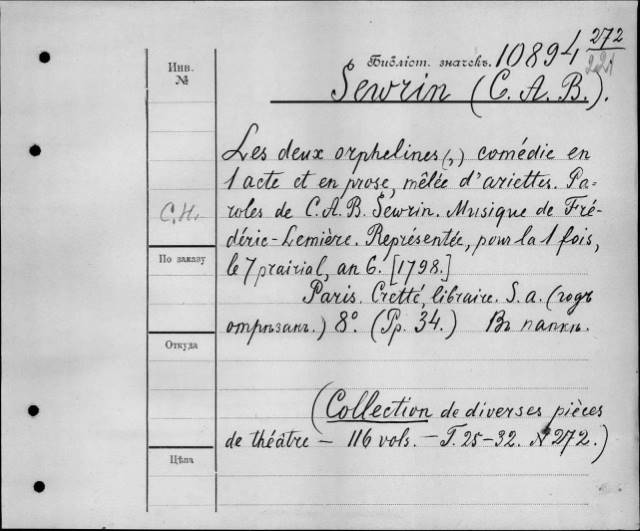 272
Инв.
№
Библіот. значекъ. 10894 221
Sewrin (C. A. B.).
Les deux orphelines (,) comédie en
1 acte et en prose, mêlée d'ariettes. Pa-
С.Н. roles de C. A. B. Sewrin. Musique de Fré-
déric-Lemière. Représentée, pour la 1 fois,
По заказу
le 7 prairial, an 6. [1798.]
Paris. Cretté, libraire. S. a. (годъ
отрѣзанъ.) 8°. (Pp. 34.) Въ папкѣ.
Откуда
(Collection de diverses pièces
de théâtre — 116 vols. — T. 25-32. № 272.)
Цѣна